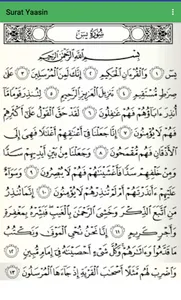 Surat Yaasin
سُورَةُ يسٓ
بِسْمِ اللَّهِ الرَّحْمَٰنِ الرَّحِيمِ
يسٓ ١ وَالْقُرْآنِ الْحَكِيمِ ٢ إِنَّكَ لَمِنَ الْمُرْسَلِينَ ٣ عَلَىٰ
صِرَاطٍ مُسْتَقِيمٍ ٤ تَنْزِيلَ الْعَزِيزِ الرَّحِيمِ ٥ لِتُنْذِرَ قَوْمًا مَا
أُنْذِرَ آبَاؤُهُمْ فَهُمْ غَافِلُونَ ٦ لَقَدْ حَقَّ الْقَوْلُ عَلَىٰ أَكْثَرِهِمْ
فَهُمْ لَا يُؤْمِنُونَ ٧ إِنَّا جَعَلْنَا فِي أَعْنَاقِهِمْ أَغْلَالًا فَهِيَ إِلَى
الْأَذْقَانِ فَهُمْ مُقْمَحُونَ ٨ وَجَعَلْنَا مِنْ بَيْنِ أَيْدِيهِمْ سَدًّا
وَمِنْ خَلْفِهِمْ سَدًّا فَأَغْشَيْنَاهُمْ فَهُمْ لَا يُبْصِرُونَ ٩ وَسَوَاءٌ
عَلَيْهِمْ أَأَنْذَرْتَهُمْ أَمْ لَمْ تُنْذِرْهُمْ لَا يُؤْمِنُونَ ١٠ إِنَّمَا تُنْذِرُ
مَنِ اتَّبَعَ الذِّكْرَ وَخَشِيَ الرَّحْمَٰنَ بِالْغَيْبِ فَبَشِّرْهُ بِمَغْفِرَةٍ
وَأَجْرٍ كَرِيمٍ ١١ إِنَّا نَحْنُ نُحْيِي الْمَوْتَىٰ وَنَكْتُبُ
مَا قَدَّمُوا وَآثَارَهُمْ وَكُلَّ شَيْءٍ أَحْصَيْنَاهُ فِي إِمَامٍ مُبِينٍ ١٢
وَاضْرِبْ لَهُمْ مَثَلًا أَصْحَابَ الْقَرْيَةِ إِذْ جَاءَهَا الْمُرْسَلُونَ ١٣